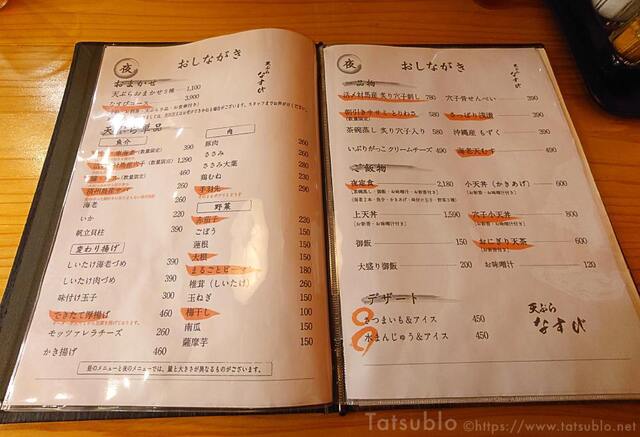 夜
おしながき
天ぷら
なすび
おまかせ
天ぷらおまかせ５種 1,100
なすびコース 3,900
天ぷら単品
魚介
1,290
海老
いか 220
帆立貝柱 390
変わり揚げ
しいたけ海老づめ 390
しいたけ肉づめ
味付け玉子
できたて厚揚げ 460
モッツァレラチーズ 260
かき揚げ 460
肉
豚肉 260
ささみ 260
ささみ大葉
鶏むね 260
手羽先 290
野菜
赤茄子 220
ごぼう 150
蓮根 150
大根 150
まるごとピーマン 180
椎茸（しいたけ） 260
玉ねぎ 150
梅干し 100
南瓜 150
薩摩芋 150
昼のメニューと夜のメニューでは、量と大きさが異なるものがございます。
夜
おしながき
天ぷら
なすび
一品物
活〆対馬産 炙り穴子刺し 780
穴子骨せんべい 390
朝引きササミ とりわさ 580
(数量限定)
さっぱり浅漬 390
茶碗蒸し 炙り穴子入り 580
沖縄産もずく 390
いぶりがっこクリームチーズ 490
海老天むす
ご飯物
夜定食 2,180
小天丼（かきあげ） 600
上天丼 1,590
穴子小天丼 800
御飯 150
おにぎり天茶 600
大盛り御飯 200
お味噌汁 120
デザート
さつまいも＆アイス 450
水まんじゅう＆アイス 450
天ぷら
なすび
Tatsublo ©https://www.tatsublo.net